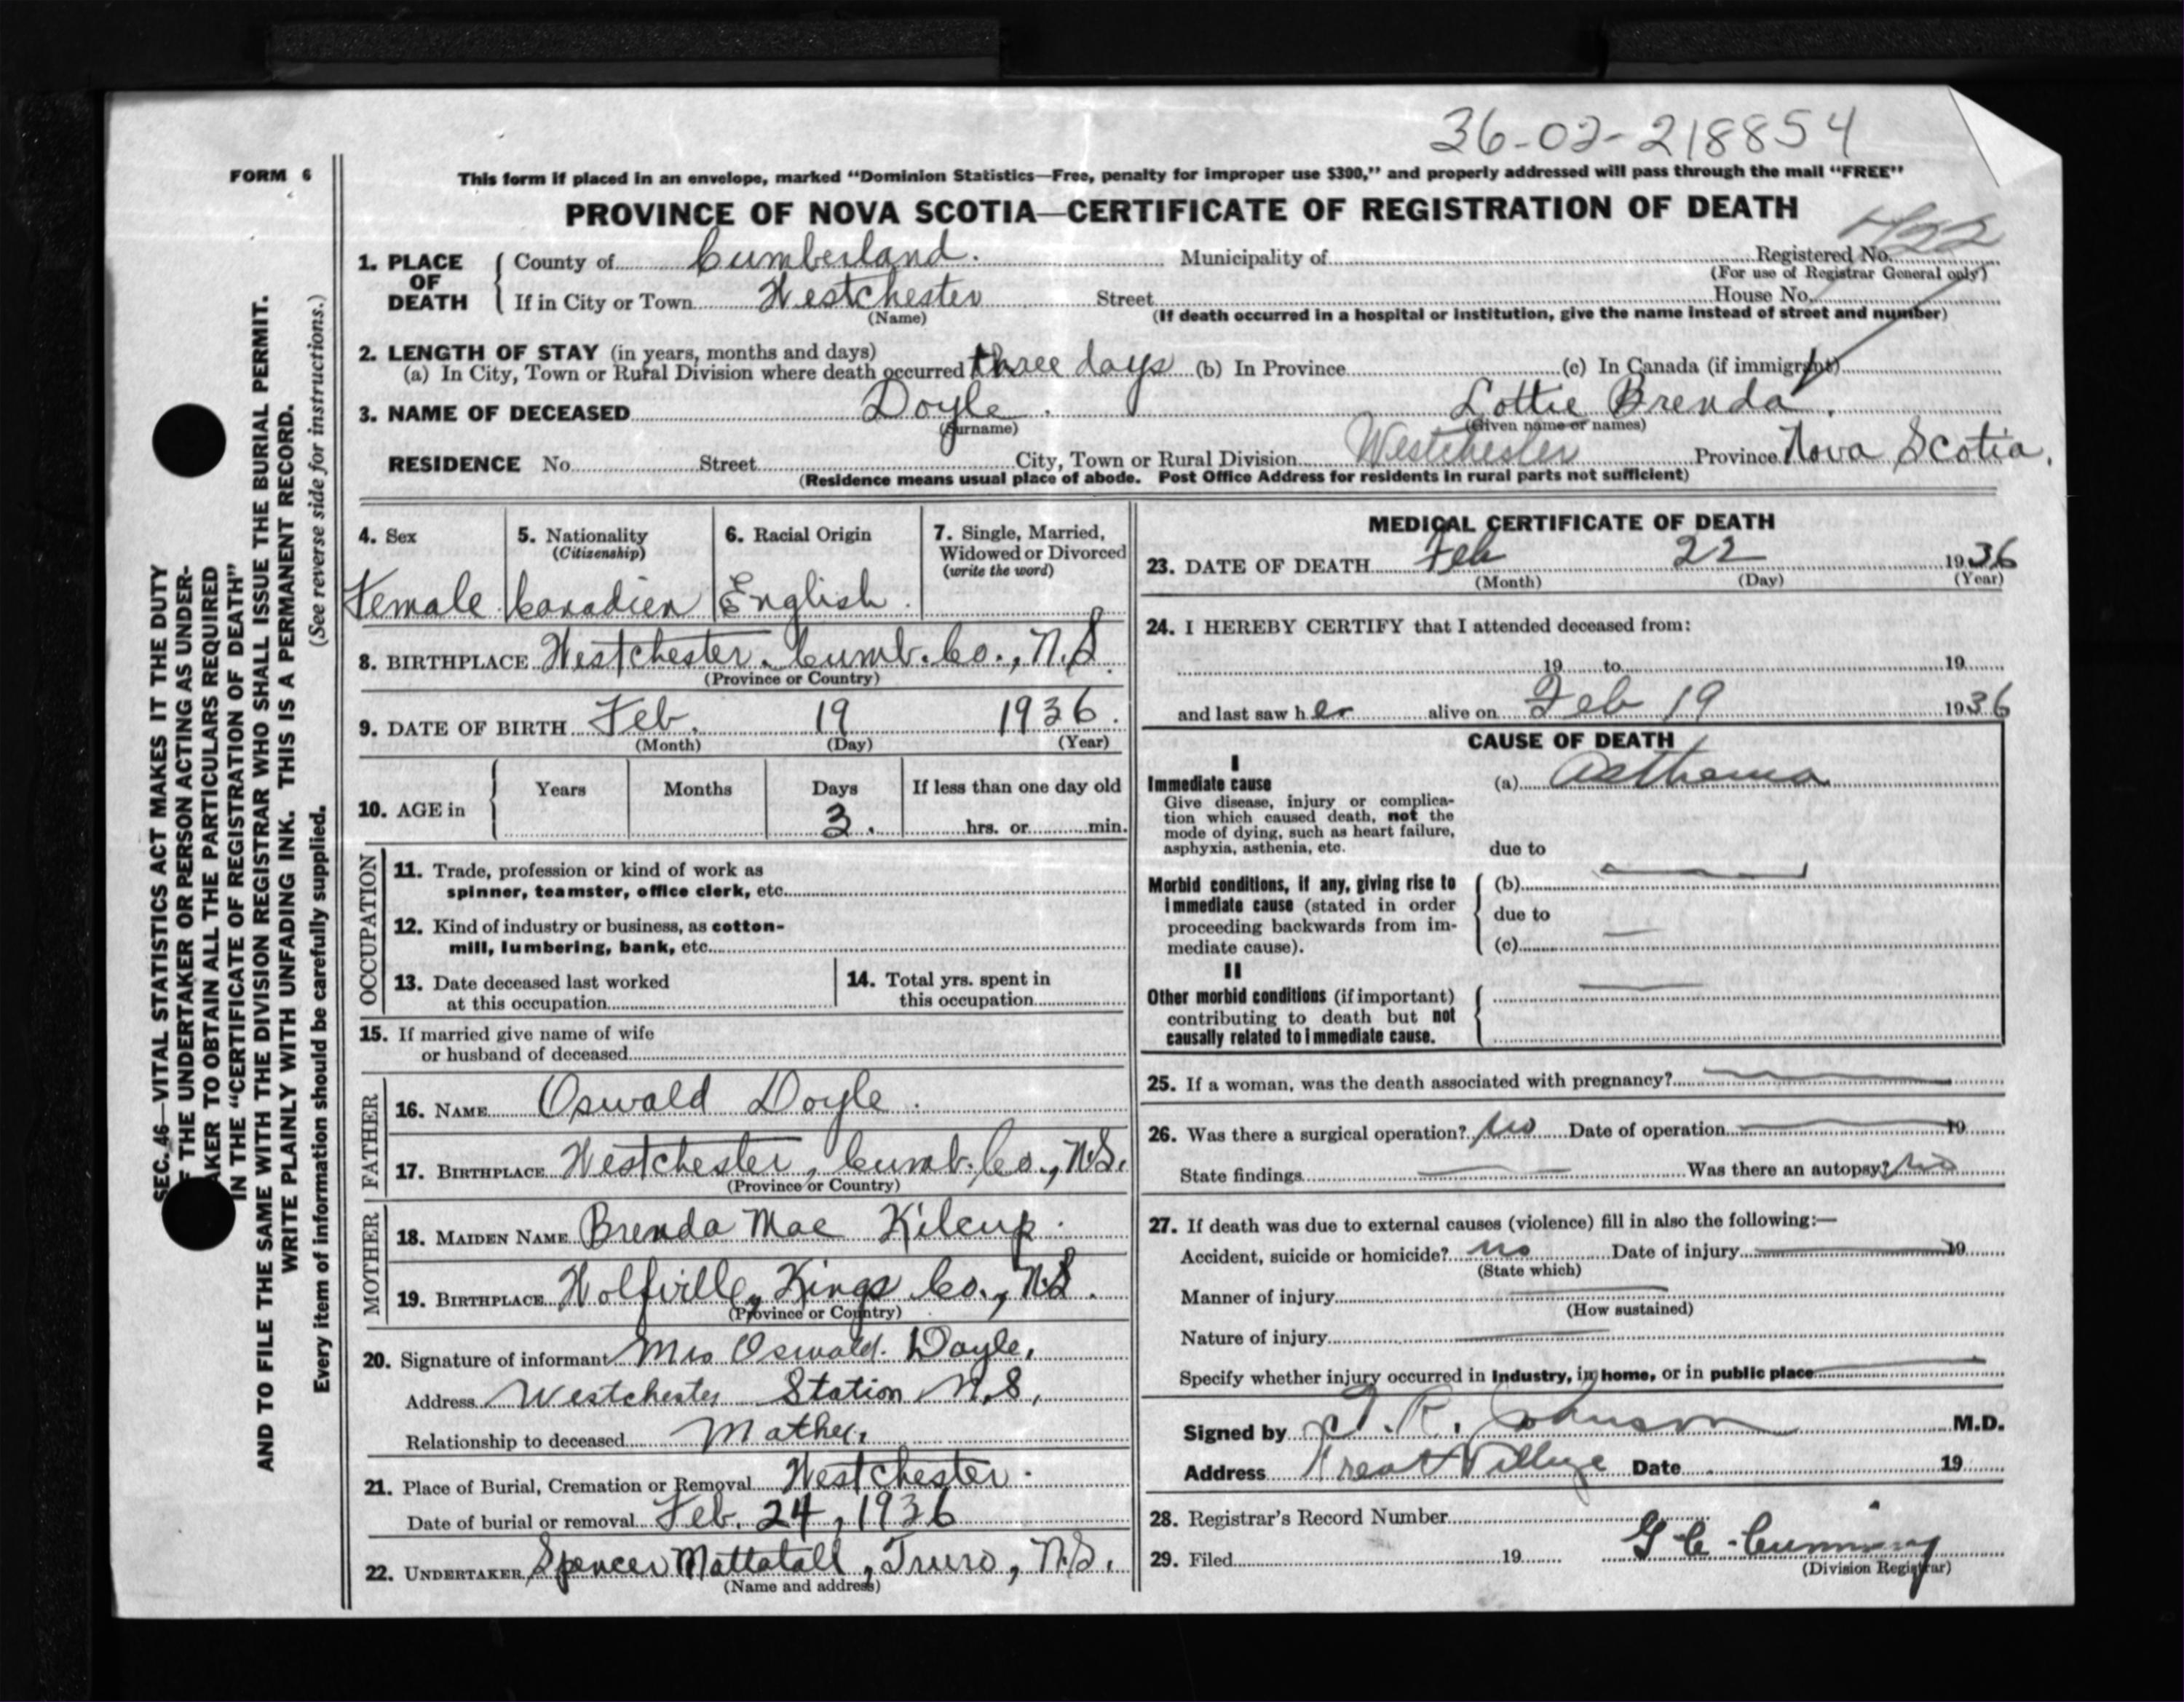 36-02-218854
FORM 6
This form if placed in an envelope, marked "Dominion Statistics—Free, penalty for improper use $300," and properly addressed will pass through the mail "FREE"
PROVINCE OF NOVA SCOTIA—CERTIFICATE OF REGISTRATION OF DEATH
1. PLACE OF DEATH
County of Cumberland. Municipality of Registered No.
(For use of Registrar General only)
If in City or Town Westchester Street House No.
(Name) (If death occurred in a hospital or institution, give the name instead of street and number)
2. LENGTH OF STAY (in years, months and days)
(a) In City, Town or Rural Division where death occurred three days (b) In Province (c) In Canada (if immigrant)
3. NAME OF DECEASED Doyle. Lottie Brenda.
(Surname) (Given name or names)
RESIDENCE No Street City, Town or Rural Division Westchester Province Nova Scotia.
(Residence means usual place of abode. Post Office Address for residents in rural parts not sufficient)
4. Sex
Female.
5. Nationality
(Citizenship)
Canadien
6. Racial Origin
English.
7. Single, Married,
Widowed or Divorced
(write the word)
8. BIRTHPLACE Westchester. Cumb. Co., N.S.
(Province or Country)
9. DATE OF BIRTH Feb. 19 1936.
(Month) (Day) (Year)
10. AGE in
Years Months Days If less than one day old
3. hrs. or min.
OCCUPATION
11. Trade, profession or kind of work as
spinner, teamster, office clerk, etc.
12. Kind of industry or business, as cotton-
mill, lumbering, bank, etc.
13. Date deceased last worked
at this occupation
14. Total yrs. spent in
this occupation
15. If married give name of wife
or husband of deceased
FATHER
16. NAME Oswald Doyle.
17. BIRTHPLACE Westchester, Cumb. Co., N.S.
(Province or Country)
MOTHER
18. MAIDEN NAME Brenda Mae Kilcup.
19. BIRTHPLACE Wolfville, Kings Co., N.S.
(Province or Country)
20. Signature of informant Mrs Oswald. Doyle,
Address Westchester Station N.S,
Relationship to deceased Mother,
21. Place of Burial, Cremation or Removal Westchester.
Date of burial or removal Feb. 24, 1936
22. UNDERTAKER Spencer Mattatall, Truro, N.S.
(Name and address)
MEDICAL CERTIFICATE OF DEATH
23. DATE OF DEATH Feb 22 1936
(Month) (Day) (Year)
24. I HEREBY CERTIFY that I attended deceased from:
19 to 19
and last saw her alive on Feb 19 1936
CAUSE OF DEATH
I
Immediate cause (a)
Give disease, injury or complica-
tion which caused death, not the
mode of dying, such as heart failure,
asphyxia, asthenia, etc. due to
Morbid conditions, if any, giving rise to (b)
immediate cause (stated in order due to
proceeding backwards from im-
mediate cause). (c)
II
Other morbid conditions (if important)
contributing to death but not
causally related to immediate cause.
25. If a woman, was the death associated with pregnancy?
26. Was there a surgical operation? No Date of operation 19
State findings Was there an autopsy? No
27. If death was due to external causes (violence) fill in also the following:—
Accident, suicide or homicide? no Date of injury 19
(State which)
Manner of injury
(How sustained)
Nature of injury
Specify whether injury occurred in Industry, in home, or in public place
Signed by T. R. Johnson M.D.
Address Great Village Date 19
28. Registrar's Record Number
29. Filed 19 G C Cumming
(Division Registrar)
SEC. 46—VITAL STATISTICS ACT MAKES IT THE DUTY
THE UNDERTAKER OR PERSON ACTING AS UNDER-
TAKER TO OBTAIN ALL THE PARTICULARS REQUIRED
IN THE "CERTIFICATE OF REGISTRATION OF DEATH"
AND TO FILE THE SAME WITH THE DIVISION REGISTRAR WHO SHALL ISSUE THE BURIAL PERMIT.
WRITE PLAINLY WITH UNFADING INK. THIS IS A PERMANENT RECORD.
Every item of information should be carefully supplied. (See reverse side for instructions.)